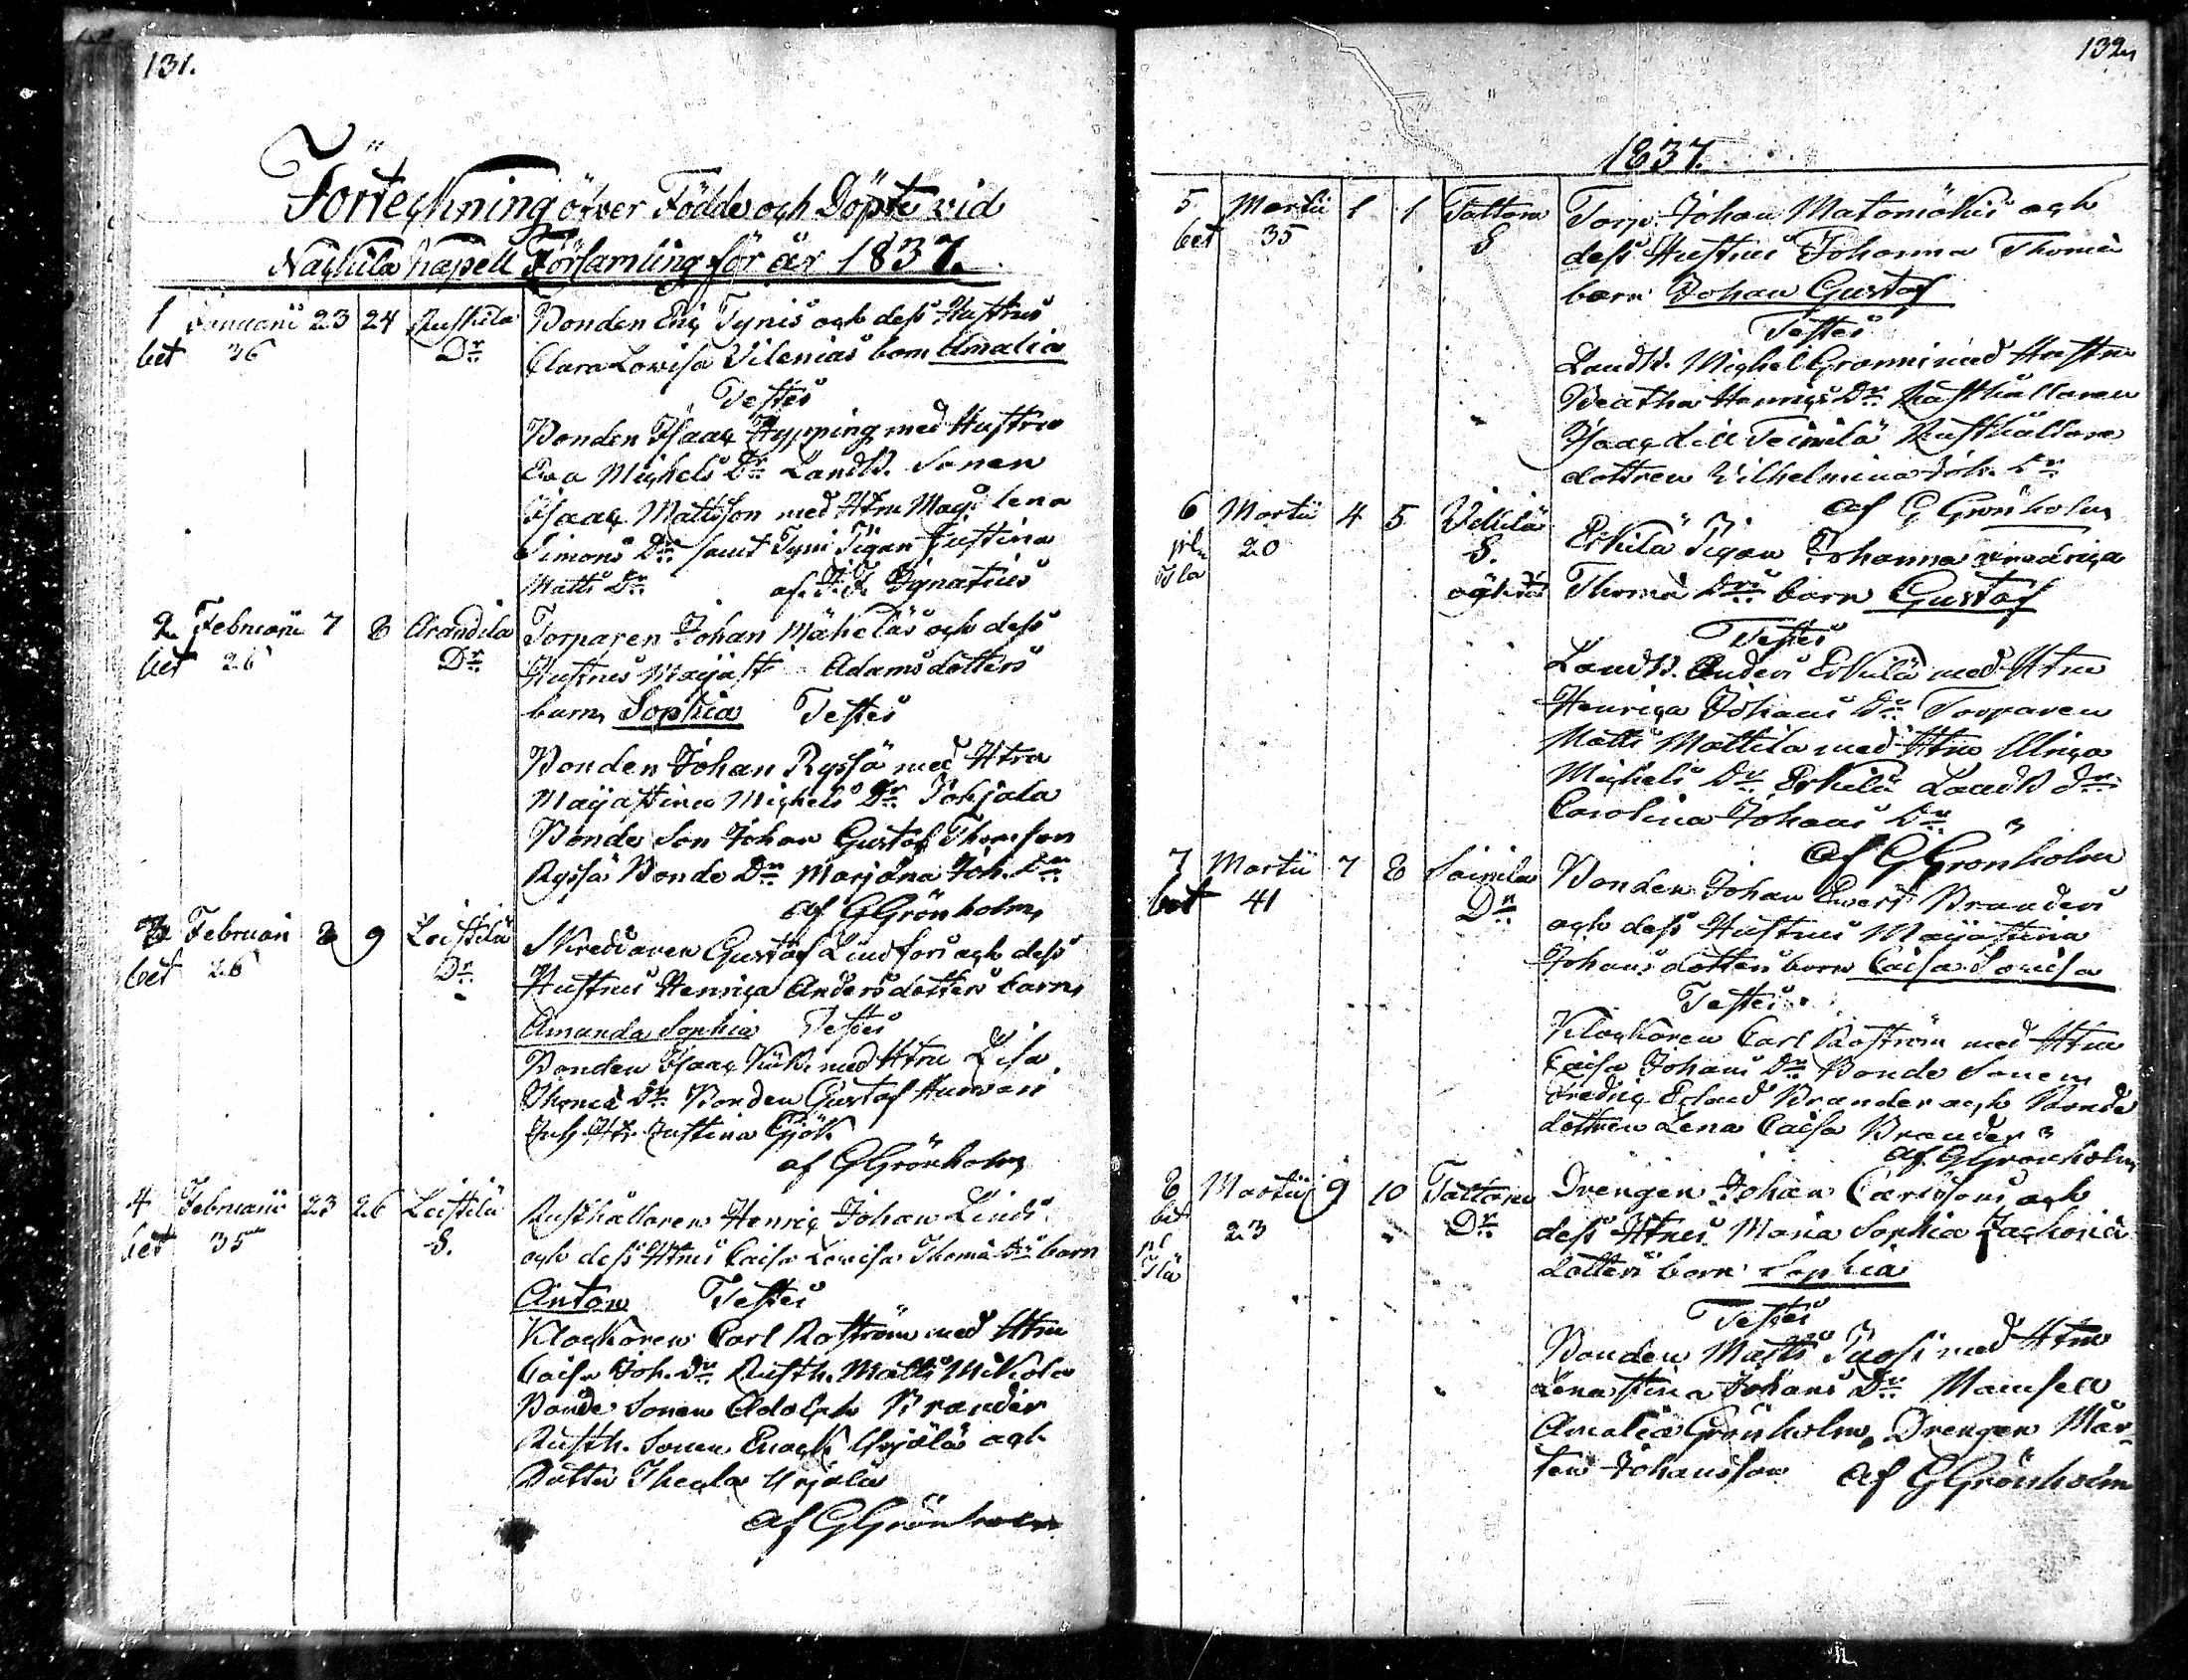 131.
Förteckning öfver Födde och Döpte vid
Nackila Kapell Församling för år 1837.
1 Januarii 23 24 Ruskila Bonden Eric Tynis och dess Hustrus
bet 36 Dr Clara Lovisa Vilenias barn Amalia
Testes
Bonden Isaac Hypping med Hustru
Eva Michels Dr Landtb. Sonen
Isaac Mattsson med Htru Magdlena
Simons Dr samt Tyni Pigan Justina
Matts Dr af J. F. Ignatius
2 Februarii 7 8 Arandila Torparen Johan Mäheläs och dess
bet 26 Dr Hustrus Majast Adamsdotters
barn Sophia Testes
Bonden Johan Ryssä med Htru
Majastina Michels Dr Pohjala
Bonde Son Johan Gustaf Thomsson
Ryssä Bonde Dr Marjana Joh. Dr
af G Grönholm
3 Februari 8 9 Leistilä Skreddaren Gustaf Lindfors och dess
bet 26 Dr Hustrus Henrica Andersdotters barn
Amanda Sophia Testes
Bonden Isaac med Htru Lisa
Thomæ Dr Bonden Gustaf
Justina Gjök
af G Grönholm
4 Februarii 23 26 Leistilä Rusthållaren Henric Johan Linds
bet 35 S. och dess Htrus Caisa Lovisa Thomæ Drs barn
Anton Testes
Klockaren Carl Roström med Htru
Caisa Joh. Dr Rusth. Matts Mikola
Bonde Sonen Adolph Brander
Rusth. Sonen Enock Yrjälä och
Dotter Thecla Yrjälä
af G Grönholm
132
1837.
5 Martii 1 1 Tattara Torp. Johan Matomäkis och
bet 35 S dess Hustrus Johanna Thomæ
barn Johan Gustaf
Testes
Landtb. Michel Gronni med Hustru
Beatha Henrics Dr Rusthållaren
Isaac Lill Teimilä Rusthållare
dottren Vilhelmina Joh. Dr
af G Grönholm
6 Martii 4 5 Villilä Erkilä Pigan Johanna Fredrica
20 S. Thomæ Drs barn Gustaf
oächta
Testes
Landtb. Anders Erkilä med Htru
Henrica Johans Dr Torparen
Matts Mattila med Htru Ulrica
Michels Dr Erkilä Landtb Dr
Carolina Johans Dr
af G Grönholm
7 Martii 7 8 Soinila Bonden Johan Evert Branders
bet 41 Dr och dess Hustrus Majastina
Johansdotters barn Caisa Lovisa
Testes
Klockaren Carl Roström med Htru
Caisa Johans Dr Bonde Sonen
Fredric Erland Brander och Bonde
dottren Lena Caisa Brander
af G Grönholm
8 Martii 9 10 Tattara Drengen Johan Carlssons och
bet 23 Dr dess Htrus Maria Sophia Zachariæ
dotters barn Sophia
Testes
Bonden Matts Tuosi med Htru
Lenastina Johans Dr Mamsell
Amalia Grönholm, Drengen Mår-
ten Johansson af G Grönholm